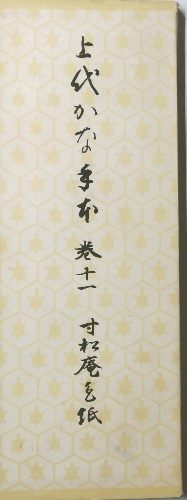 上代かな手本 巻十一 寸松庵色紙